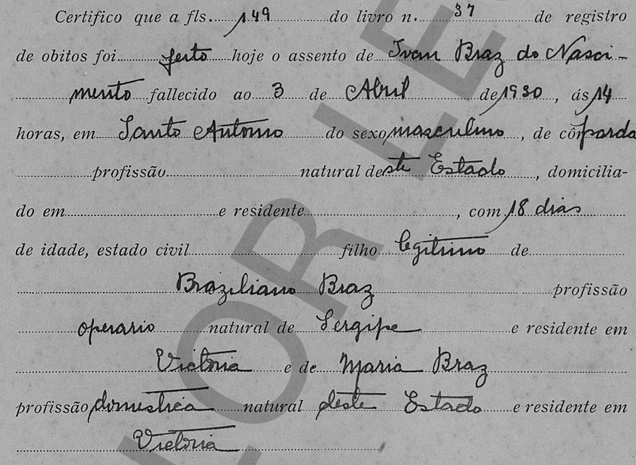 Certifico que a fls. 149 do livro n. 37 de registro
de obitos foi feito hoje o assento de Ivan Braz do Nasci-
mento fallecido ao 3 de Abril de 1930, ás 14
horas, em Santo Antonio do sexo masculino, de côr parda
profissão natural deste Estado, domicilia-
do em e residente, com 18 dias
de idade, estado civil filho legitimo de
Braziliano Braz profissão
operario natural de Sergipe e residente em
Victoria e de Maria Braz
profissão domestica natural deste Estado e residente em
Victoria